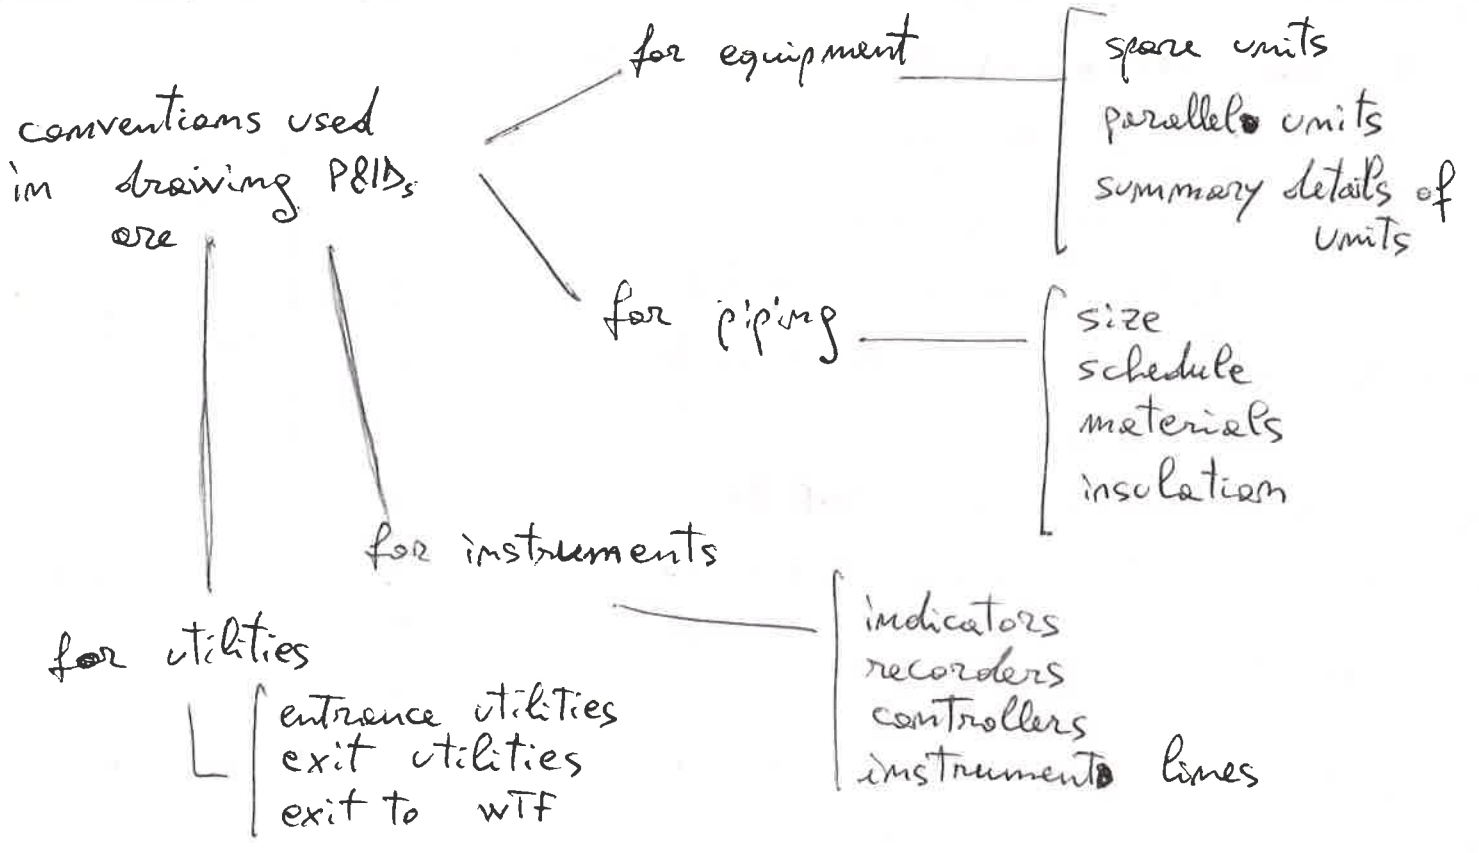 conventions used
in drawing P&IDs
are
for equipment
spare units
parallel units
summary details of
units
for piping
size
schedule
materials
insulation
for instruments
indicators
recorders
controllers
instrument lines
for utilities
entrance utilities
exit utilities
exit to WTF